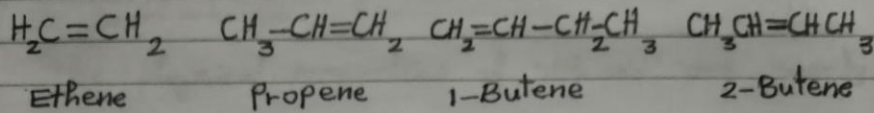 H₂C=CH₂ CH₃-CH=CH₂ CH₂=CH-CH₂-CH₃ CH₃CH=CHCH₃
Ethene Propene 1-Butene 2-Butene